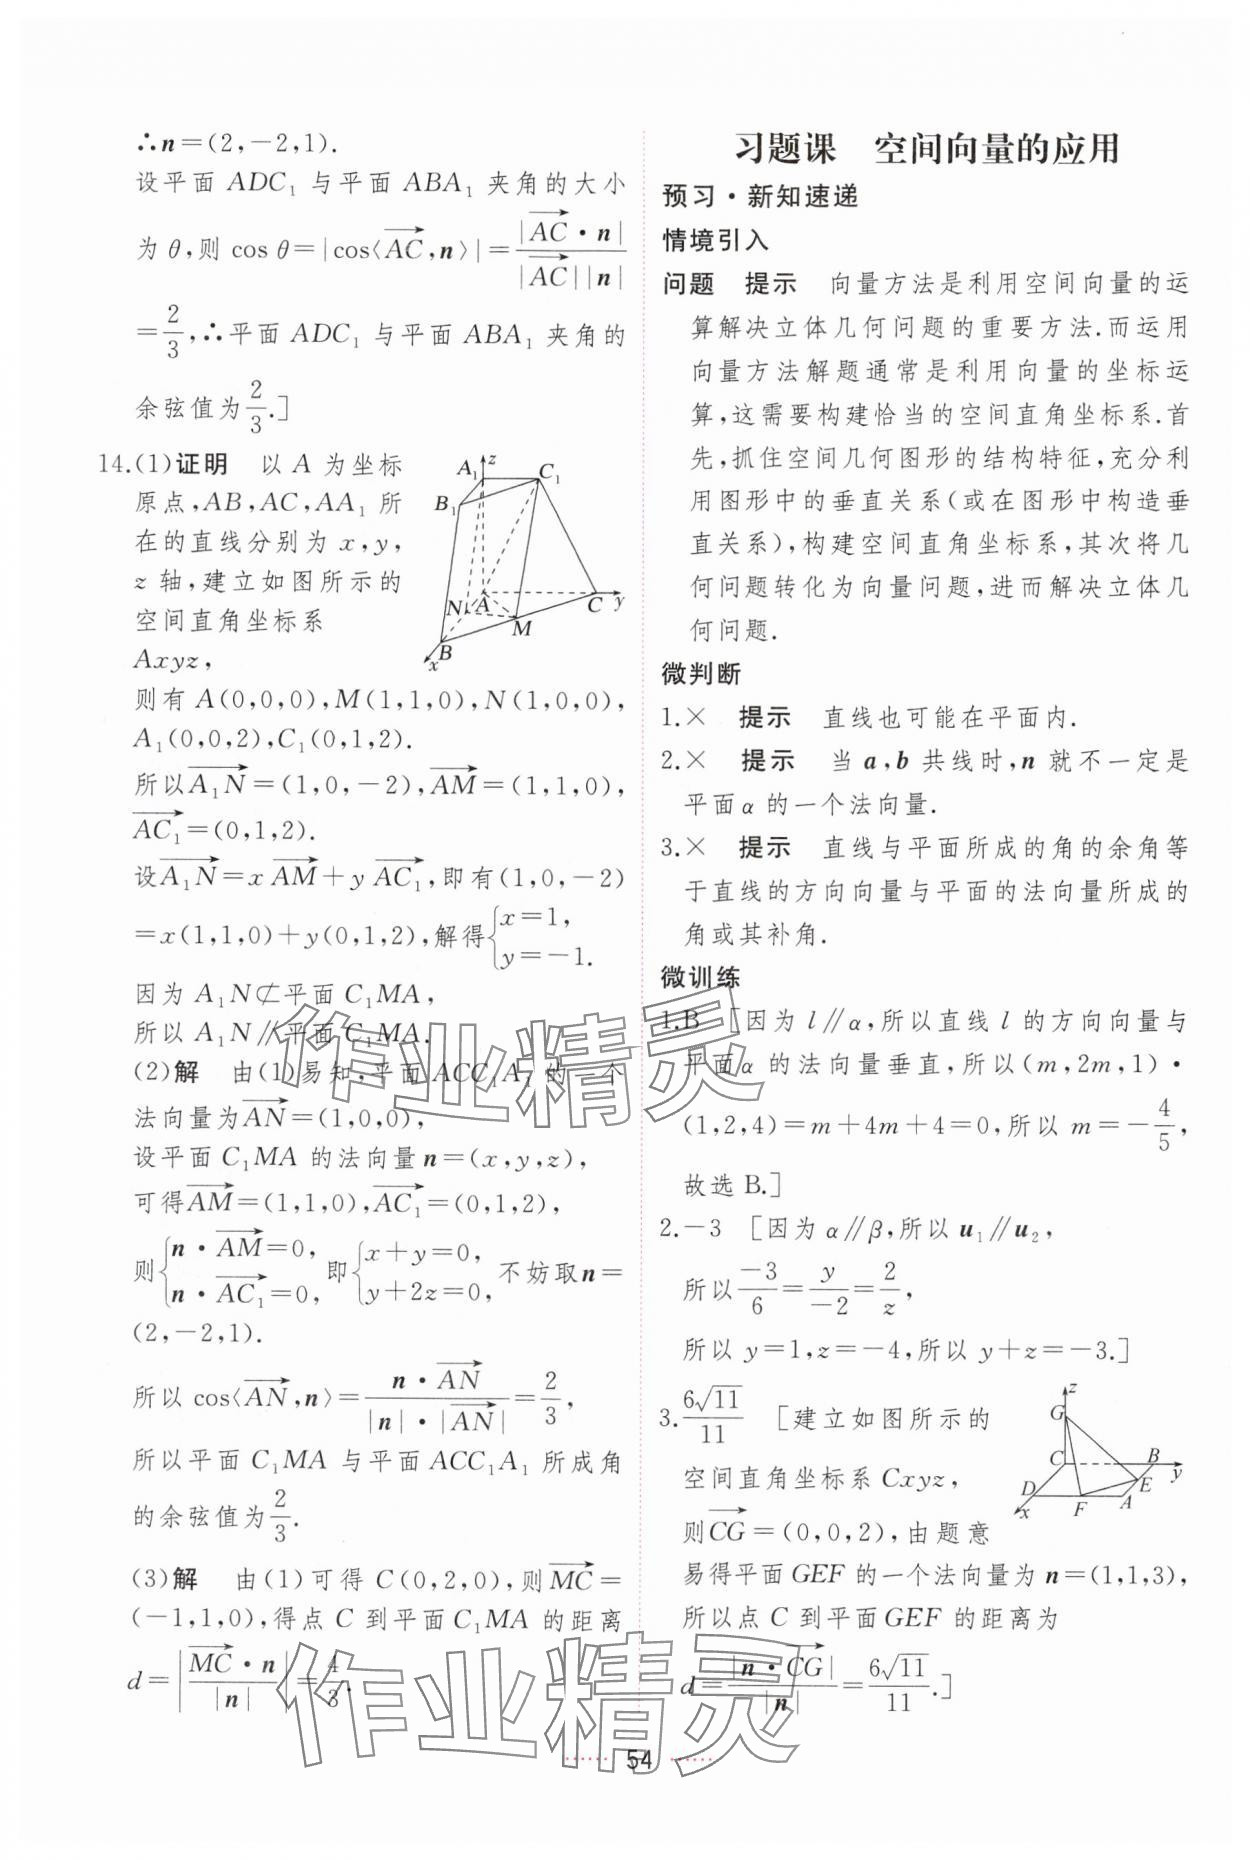 ∴n=(2,-2,1).
设平面 ADC₁ 与平面 ABA₁ 夹角的大小
为 θ,则 cos θ=|cos⟨AC→,n⟩|=|AC→·n|/(|AC→||n|)
=2/3,∴平面 ADC₁ 与平面 ABA₁ 夹角的
余弦值为2/3.]
14.(1)证明 以 A 为坐标
原点,AB,AC,AA₁ 所
在的直线分别为 x,y,
z 轴,建立如图所示的
空间直角坐标系
Axyz,
z
A₁
C₁
B₁
N
A
C
y
M
B
x
则有 A(0,0,0),M(1,1,0),N(1,0,0),
A₁(0,0,2),C₁(0,1,2).
所以A₁N→=(1,0,-2),AM→=(1,1,0),
AC₁→=(0,1,2).
设A₁N→=x AM→+y AC₁→,即有(1,0,-2)
=x(1,1,0)+y(0,1,2),解得{x=1, y=-1.
因为 A₁N⊄平面 C₁MA,
所以 A₁N∥平面 C₁MA.
(2)解 由(1)易知,平面 ACC₁A₁ 的一个
法向量为AN→=(1,0,0),
设平面 C₁MA 的法向量 n=(x,y,z),
可得AM→=(1,1,0),AC₁→=(0,1,2),
则{n·AM→=0, n·AC₁→=0, 即{x+y=0, y+2z=0, 不妨取n=
(2,-2,1).
所以 cos⟨AN→,n⟩=n·AN→/(|n|·|AN→|)=2/3,
所以平面 C₁MA 与平面 ACC₁A₁ 所成角
的余弦值为2/3.
(3)解 由(1)可得 C(0,2,0),则MC→=
(-1,1,0),得点 C 到平面 C₁MA 的距离
d=|MC→·n/|n||=4/3.
习题课 空间向量的应用
预习·新知速递
情境引入
问题 提示 向量方法是利用空间向量的运
算解决立体几何问题的重要方法.而运用
向量方法解题通常是利用向量的坐标运
算,这需要构建恰当的空间直角坐标系.首
先,抓住空间几何图形的结构特征,充分利
用图形中的垂直关系(或在图形中构造垂
直关系),构建空间直角坐标系,其次将几
何问题转化为向量问题,进而解决立体几
何问题.
微判断
1.× 提示 直线也可能在平面内.
2.× 提示 当 a,b 共线时,n 就不一定是
平面 α 的一个法向量.
3.× 提示 直线与平面所成的角的余角等
于直线的方向向量与平面的法向量所成的
角或其补角.
微训练
1.B [因为 l∥α,所以直线 l 的方向向量与
平面 α 的法向量垂直,所以(m,2m,1)·
(1,2,4)=m+4m+4=0,所以 m=-4/5,
故选 B.]
2.-3 [因为 α∥β,所以 u₁∥u₂,
所以-3/6=y/-2=2/z,
所以 y=1,z=-4,所以 y+z=-3.]
3.6√11/11 [建立如图所示的
空间直角坐标系 Cxyz,
z
G
C
B
y
E
D
x
F
A
则CG→=(0,0,2),由题意
易得平面 GEF 的一个法向量为 n=(1,1,3),
所以点 C 到平面 GEF 的距离为
d=|n·CG→|/|n|=6√11/11.]
作业精灵
作业精灵
54